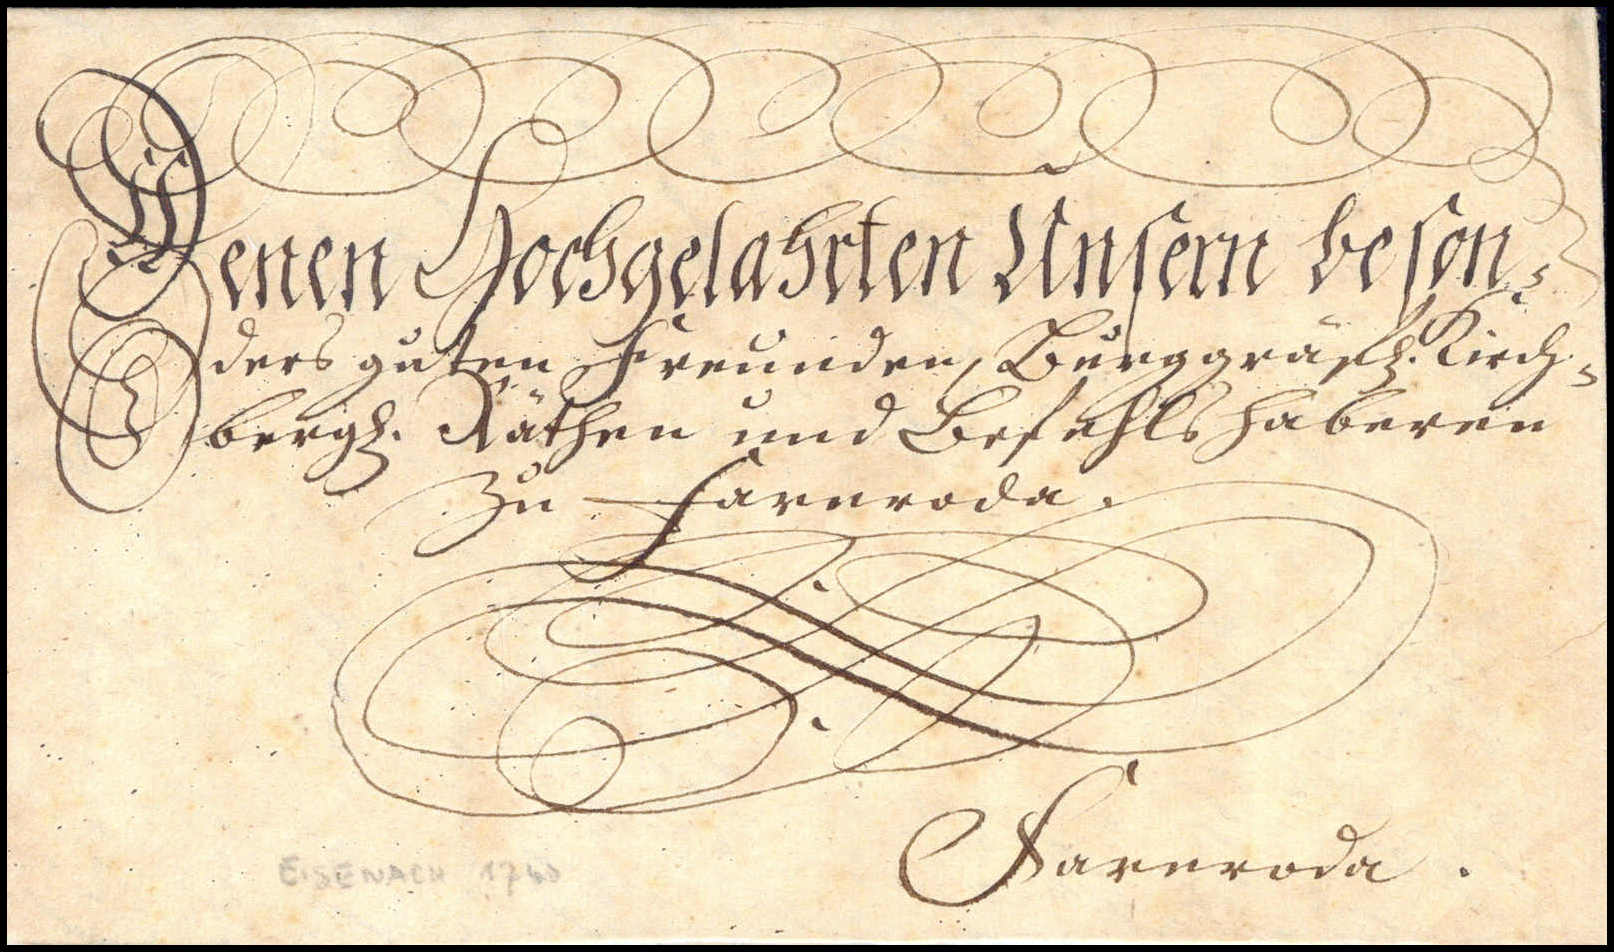 Denen Hochgelahrten Unsern beson-
ders guten Freunden, Burggräfl. Kirch-
bergl. Räthen und Befehlshaberen
zu Farnroda.
Farnroda.
EISENACH 1740